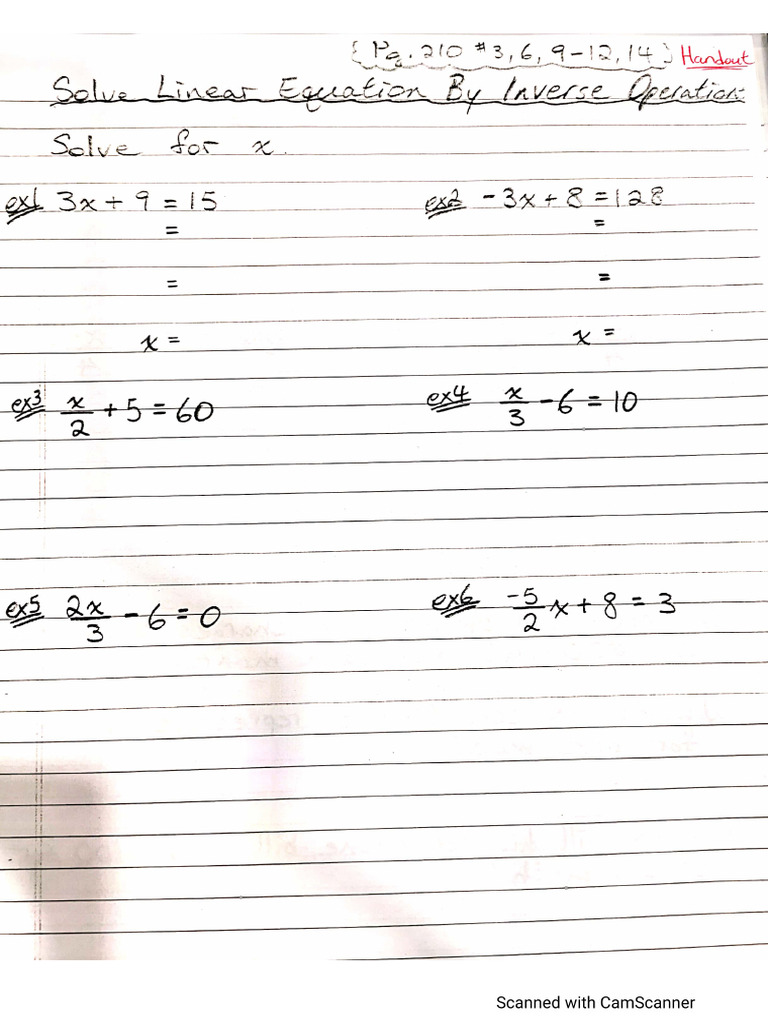 {Pg. 210 #3, 6, 9-12, 14} Handout
Solve Linear Equation By Inverse Operation:
Solve for x.
ex1 3x + 9 = 15
=
=
x =
ex2 -3x + 8 = 128
=
=
x =
ex3 x/2 + 5 = 60
ex4 x/3 - 6 = 10
ex5 2x/3 - 6 = 0
ex6 -5/2 x + 8 = 3
Scanned with CamScanner